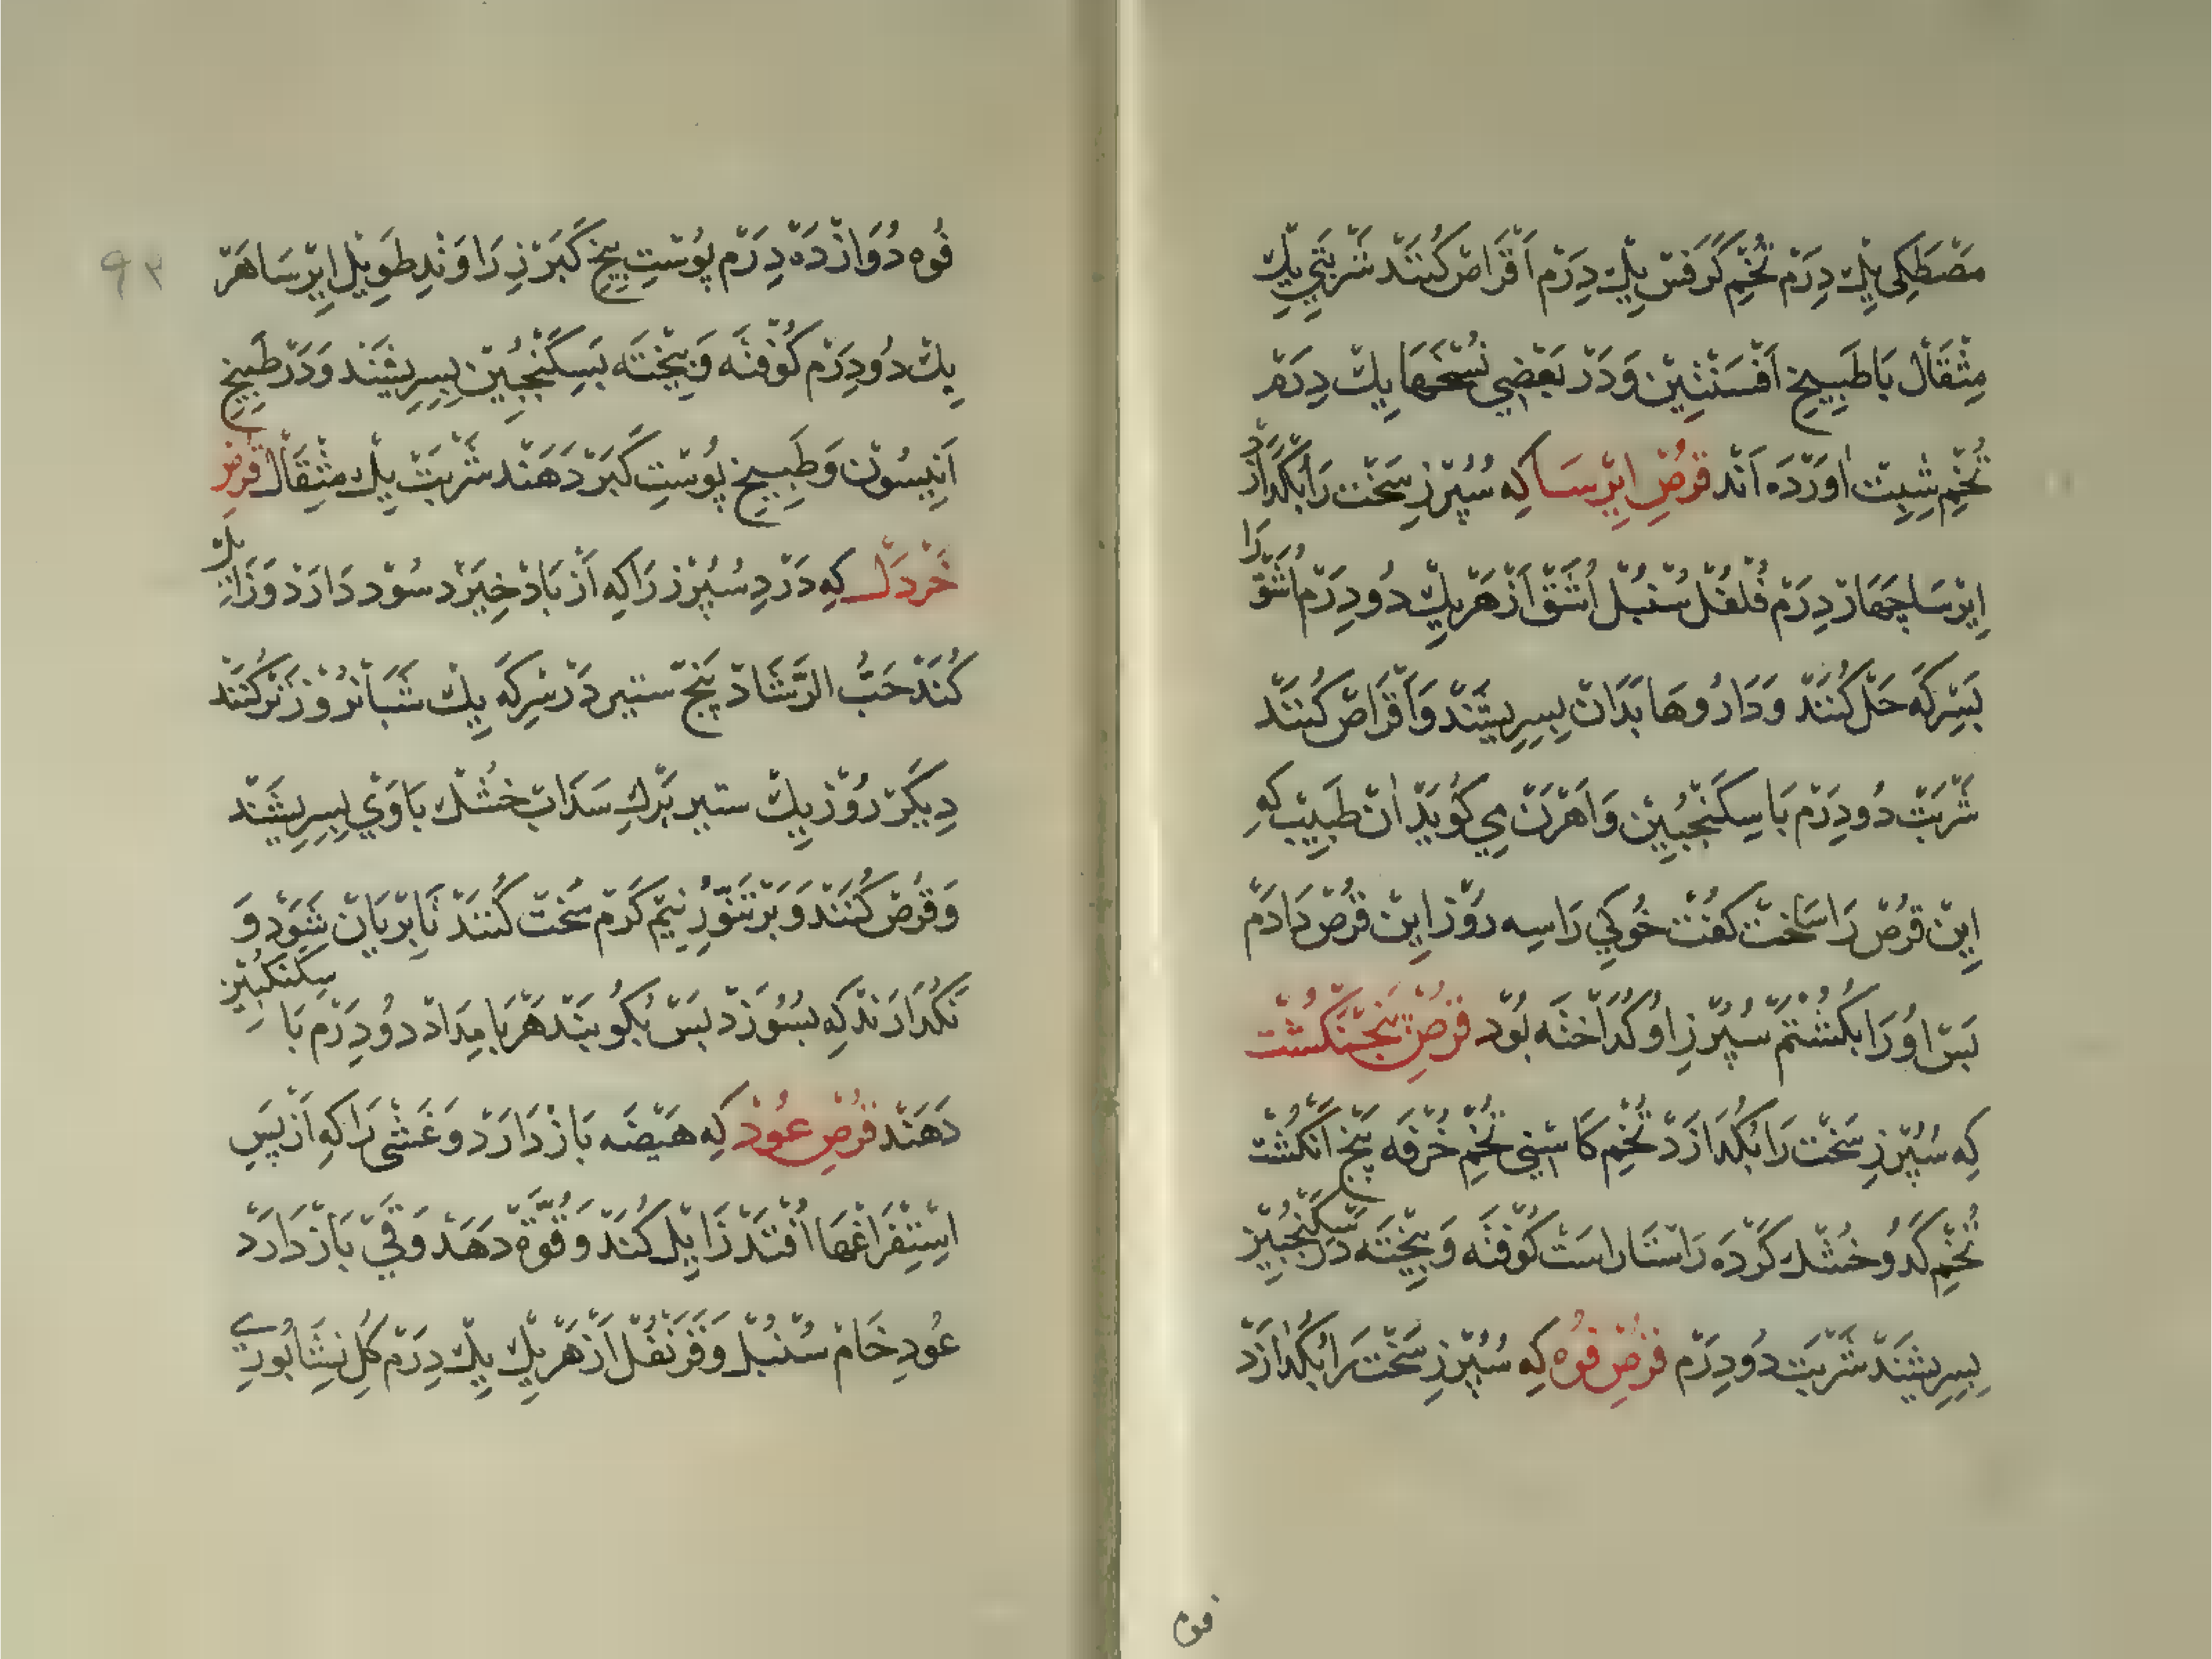 مَصْطَكِی یِكْ دِرَمْ تُخْمِ كَرَفْسْ یِكْ دِرَمْ اَقْرَاصْ كُنَنْدْ شَرْبَتِي یِكْ
مِثْقَالْ بَا طَبِیخِ اَفْسَنْتِیْن وَدَرْ بَعْضِي نُسْخَهَا یِكْ دِرَمْ
تُخْمِ شِبِتْ اٰوَرْدَه اَنْد قُرْصِ اِیْرْسَا كِه سُپُرْزِ سَخْت رَا بُكْدَازَدْ
اِیْرْسَا چَهَارْ دِرَمْ فُلْفُلْ سُنْبُلْ اُشَّقْ اَزْ هَرْ یِكْ دُو دِرَمْ اُشَّقْ رَا
بَسِرْكَه حَلْ كُنَنَدْ وَدَارُوهَا بَدَانْ بِسِرِیشَنْدْ وَاَقْرَاصْ كُنَنْدْ
شَرْبَتْ دُو دِرَمْ بَا سِكَنْجُبِیْن وَاَهْرَنْ مِي كُویَدْ اٰنْ طَبِیبْ كِه
اِیْنْ قُرْصْ رَا سَاخْتْ كُفْتْ خُوكِي رَا سِه رُوْزْ اِیْنْ قُرْصْ دَادَمْ
بَسْ اُورَا بُكُشْتَمْ سُپُرْزِ اُو كُدَاخْتَه بُوْد قُرْصِ پَنْجَنْكُشْتْ
كِه سُپُرْزِ سَخْت رَا بُكْدَازَدْ تُخْمِ كَاسْنِي تُخْمِ خُرْفَه پَنْج اَنْكُشْتْ
تُخْمِ كَدُو خُشْك كَرْدَه رَاسْتَارَاسْتْ كُوْفْتَه وَبِیْخْتَه دَرْ سِكَنْجُبِیْنْ
بِسِرِیشَنْدْ شَرْبَتْ دُو دِرَمْ قُرْصِ فُوّه كِه سُپُرْزِ سَخْت رَا بُكْدَازَدْ
فوه
۹۳
فُوه دُوَازْدَهْ دِرَمْ پُوْسْتِ بِیْخِ كَبَرْ زِرَاوَنْدِ طَوِیْلْ اِیْرْسَا هَرْ
یِكْ دُو دِرَمْ كُوْفْتَه وَبِیْخْتَه بَسِكَنْجُبِیْنْ بِسِرِیشَنْد وَدَرْ طَبِیخِ
اَنِیسُونْ وَطَبِیخِ پُوْسْتِ كَبَرْ دَهَنْد شَرْبَتْ یِكْ مِثْقَالْ قُرْصِ
خَرْدَلْ كِه دَرْدِ سُپُرْزْ رَا كِه اَزْ بَادْ خِیزَد سُوْد دَارَدْ وَزَائِلْ
كُنَدْ حَبُّ الرَّشَادْ پَنْجْ ستیر دَرْ سِرْكَه یِكْ شَبَانْرُوْزْ تَرْ كُنَنَدْ
دِیكَرْ رُوْزْ یِكْ ستیر بَرْكِ سَدَابْ خُشْك بَا وَيْ بِسِرِیشَنْدْ
وَقُرْصْ كُنَنْد وَبَرْ تَنُّوْرِ نِیْمْ كَرَمْ سَخْت كُنَنْدْ تَا بِرْیَانْ شَوَدْ وَ
نَكُدَارَنْد كِه بسُوْزَدْ بَسْ بُكُوبَنْد هَرْ بَامدَادْ دُو دِرَمْ بَا سِكَنْكُبِیْن
دَهَنْدْ قُرْصِ عُوْد كِه هَیْضَه بَازْ دَارَدْ وَغَشْی رَا كِه اَزْ پَسِ
اِسْتِفْرَاغْهَا اُفْتَدْ زَایِلْ كُنَدْ وَقُوَّةْ دَهَدْ وَقَيْ بَازْ دَارَدْ
عُودِ خَامْ سُنْبُلْ وَقَرَنْفُلْ اَزْ هَرْ یِكْ یِكْ دِرَمْ كِلِ نِشَابُورِي